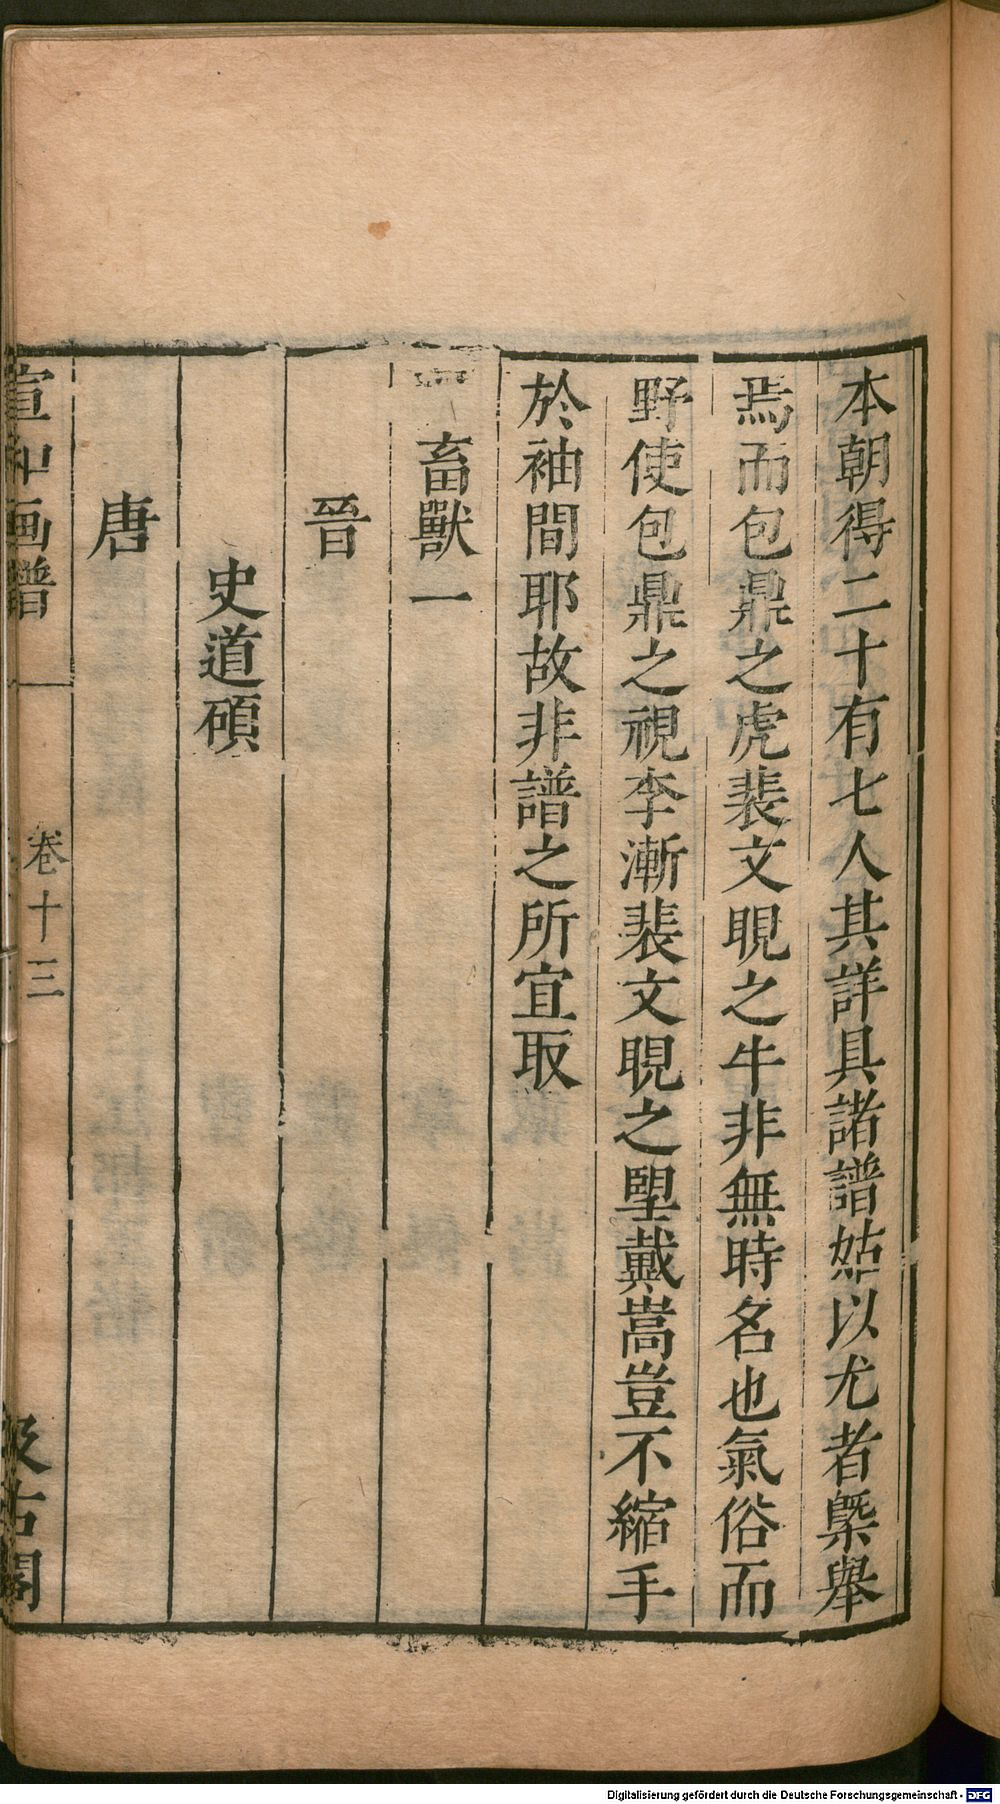 本朝得二十有七人其詳具諸譜姑以尤者槩舉
焉而包鼎之虎裴文睍之牛非無時名也氣俗而
野使包鼎之視李漸裴文睍之望戴嵩豈不縮手
於袖間耶故非譜之所宜取
畜獸一
晉
史道碩
唐
宣和画譜 卷十三 汲古閣
Digitalisierung gefördert durch die Deutsche Forschungsgemeinschaft - DFG